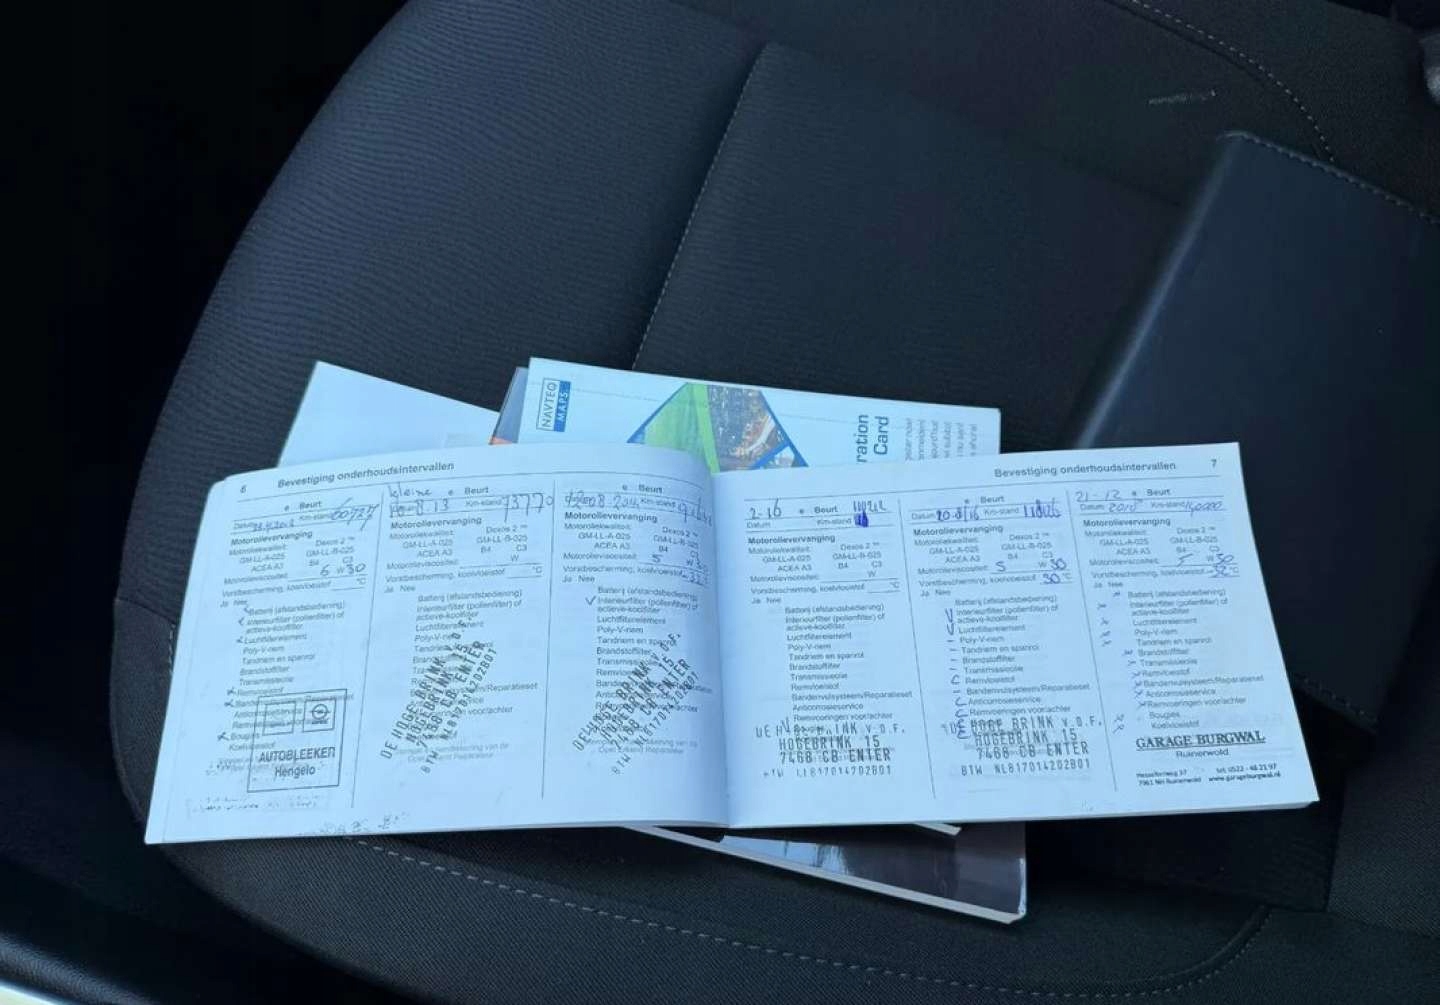 NAVTEQ
MAPS
ration
Card
6
Bevestiging onderhoudsintervallen
e Beurt
Datum Km-stand 60727
Motorolievervanging
Motoroliekwaliteit: Dexos 2 ™
GM-LL-A-025 GM-LL-B-025
ACEA A3 B4 C3
Motorolieviscositeit: 5 W 30
Vorstbescherming, koelvloeistof °C
Ja Nee
Batterij (afstandsbediening)
Interieurfilter (pollenfilter) of
actieve-koolfilter
Luchtfilterelement
Poly-V-riem
Tandriem en spanrol
Brandstoffilter
Transmissieolie
Remvloeistof
Bougies
Koelvloeistof
AUTOBLEEKER
Hengelo
kleine e Beurt
Km-stand 73770
Motorolievervanging
Motoroliekwaliteit: Dexos 2 ™
GM-LL-A-025 GM-LL-B-025
ACEA A3 B4 C3
Motorolieviscositeit: W
Vorstbescherming, koelvloeistof °C
Ja Nee
Batterij (afstandsbediening)
Interieurfilter (pollenfilter) of
actieve-koolfilter
Luchtfilterelement
Poly-V-riem
DE HOGE BRINK v.o.F.
HOGEBRINK 15
7468 CB ENTER
BTW NL817014202B01
e Beurt
Km-stand
Motorolievervanging
Motoroliekwaliteit: Dexos 2 ™
GM-LL-A-025 GM-LL-B-025
ACEA A3 B4 C3
Motorolieviscositeit: 5 W 30
Vorstbescherming, koelvloeistof
Ja Nee
Batterij (afstandsbediening)
Interieurfilter (pollenfilter) of
actieve-koolfilter
Luchtfilterelement
Poly-V-riem
Tandriem en spanrol
Brandstoffilter
DE HOGE BRINK v.o.F.
HOGEBRINK 15
7468 CB ENTER
BTW NL817014202B01
Bevestiging onderhoudsintervallen
7
2-16 e Beurt
Datum Km-stand
Motorolievervanging
Motoroliekwaliteit: Dexos 2 ™
GM-LL-A-025 GM-LL-B-025
ACEA A3 B4 C3
Motorolieviscositeit: W
Vorstbescherming, koelvloeistof °C
Ja Nee
Batterij (afstandsbediening)
Interieurfilter (pollenfilter) of
actieve-koolfilter
Luchtfilterelement
Poly-V-riem
Tandriem en spanrol
Brandstoffilter
Transmissieolie
Remvloeistof
Bandenvulsysteem/Reparatieset
Anticorrosieservice
Remvoeringen voor/achter
HOGEBRINK 15
7468 CB ENTER
BTW NL817014202B01
e Beurt
Datum 20-8/16 Km-stand
Motorolievervanging
Motoroliekwaliteit: Dexos 2 ™
GM-LL-A-025 GM-LL-B-025
ACEA A3 B4 C3
Motorolieviscositeit: 5 W 30
Vorstbescherming, koelvloeistof 30 °C
Ja Nee
Batterij (afstandsbediening)
Interieurfilter (pollenfilter) of
actieve-koolfilter
Luchtfilterelement
Poly-V-riem
Tandriem en spanrol
Brandstoffilter
Transmissieolie
Remvloeistof
Bandenvulsysteem/Reparatieset
Anticorrosieservice
Remvoeringen voor/achter
DE HOGE BRINK v.o.F.
HOGEBRINK 15
7468 CB ENTER
BTW NL817014202B01
21-12 e Beurt
Datum Km-stand
Motorolievervanging
Motoroliekwaliteit: Dexos 2 ™
GM-LL-A-025 GM-LL-B-025
ACEA A3 B4 C3
Motorolieviscositeit: 5 W 30
Vorstbescherming, koelvloeistof °C
Ja Nee
Batterij (afstandsbediening)
Interieurfilter (pollenfilter) of
actieve-koolfilter
Luchtfilterelement
Poly-V-riem
Tandriem en spanrol
Brandstoffilter
Transmissieolie
Remvloeistof
Bandenvulsysteem/Reparatieset
Anticorrosieservice
Remvoeringen voor/achter
Bougies
Koelvloeistof
GARAGE BURGWAL
Ruinerwold
tel. 0522 - 48 21 97
www.garageburgwal.nl